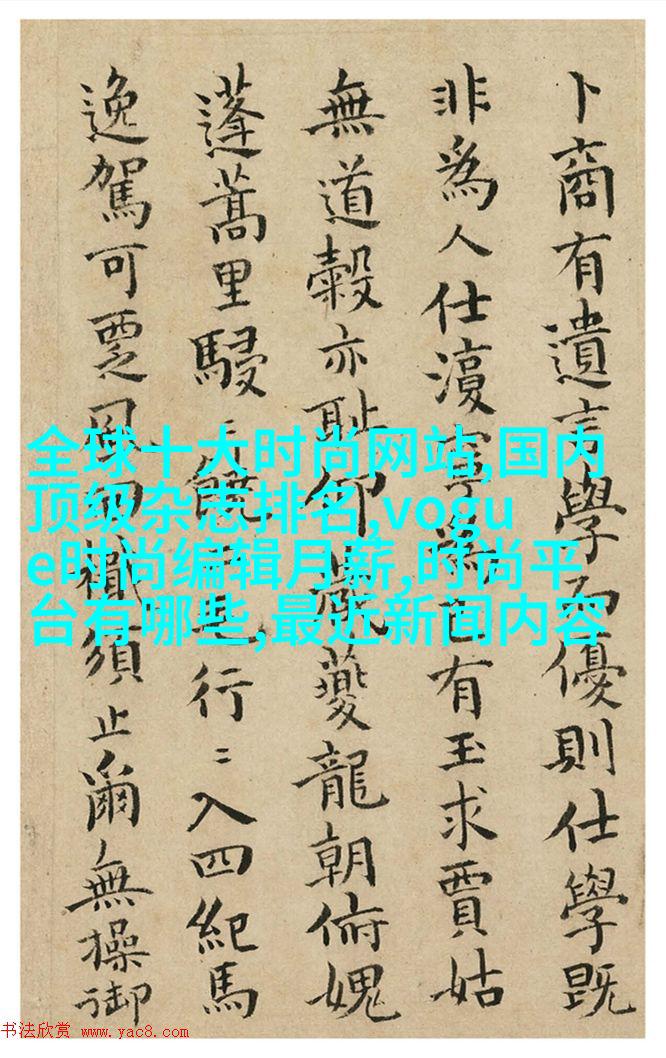 卜商有遺言學而優則仕學既
非爲人仕寧為有玉求賈姑
無道穀亦恥仰夔龍朝俯媿
蓬蒿里駸行〻入四紀馬
逸駕可覂須止爾無操御
全球十大时尚网站,国内
顶级杂志排名,vogu
e时尚编辑月薪,时尚平
台有哪些,最近新闻内容
书法欣赏 www.yac8.com